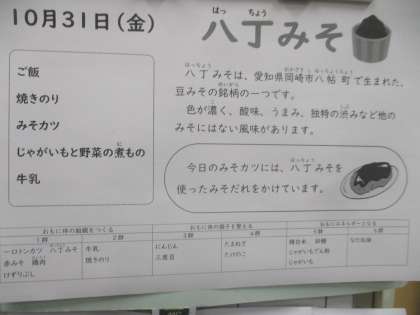 10月31日(金)
八丁みそ
はっ ちょう
ご飯
焼きのり
みそカツ
じゃがいもと野菜の煮もの
に
牛乳
はっちょう
八丁みそは、愛知県岡崎市八帖町で生まれた、
豆みその銘柄の一つです。
色が濃く、酸味、うまみ、独特の渋みなど他の
みそにはない風味があります。
今日のみそカツには、八丁みそを
使ったみそだれをかけています。
おもに体の組織をつくる
おもに体の調子を整える
おもにエネルギーとなる
1群 2群 3群 4群 5群 6群
豚ロトンカツ 八丁みそ
赤みそ 鶏肉
けずりぶし
牛乳
焼きのり
にんじん
三度豆
たまねぎ
たけのこ
じゃがいも
なたね油